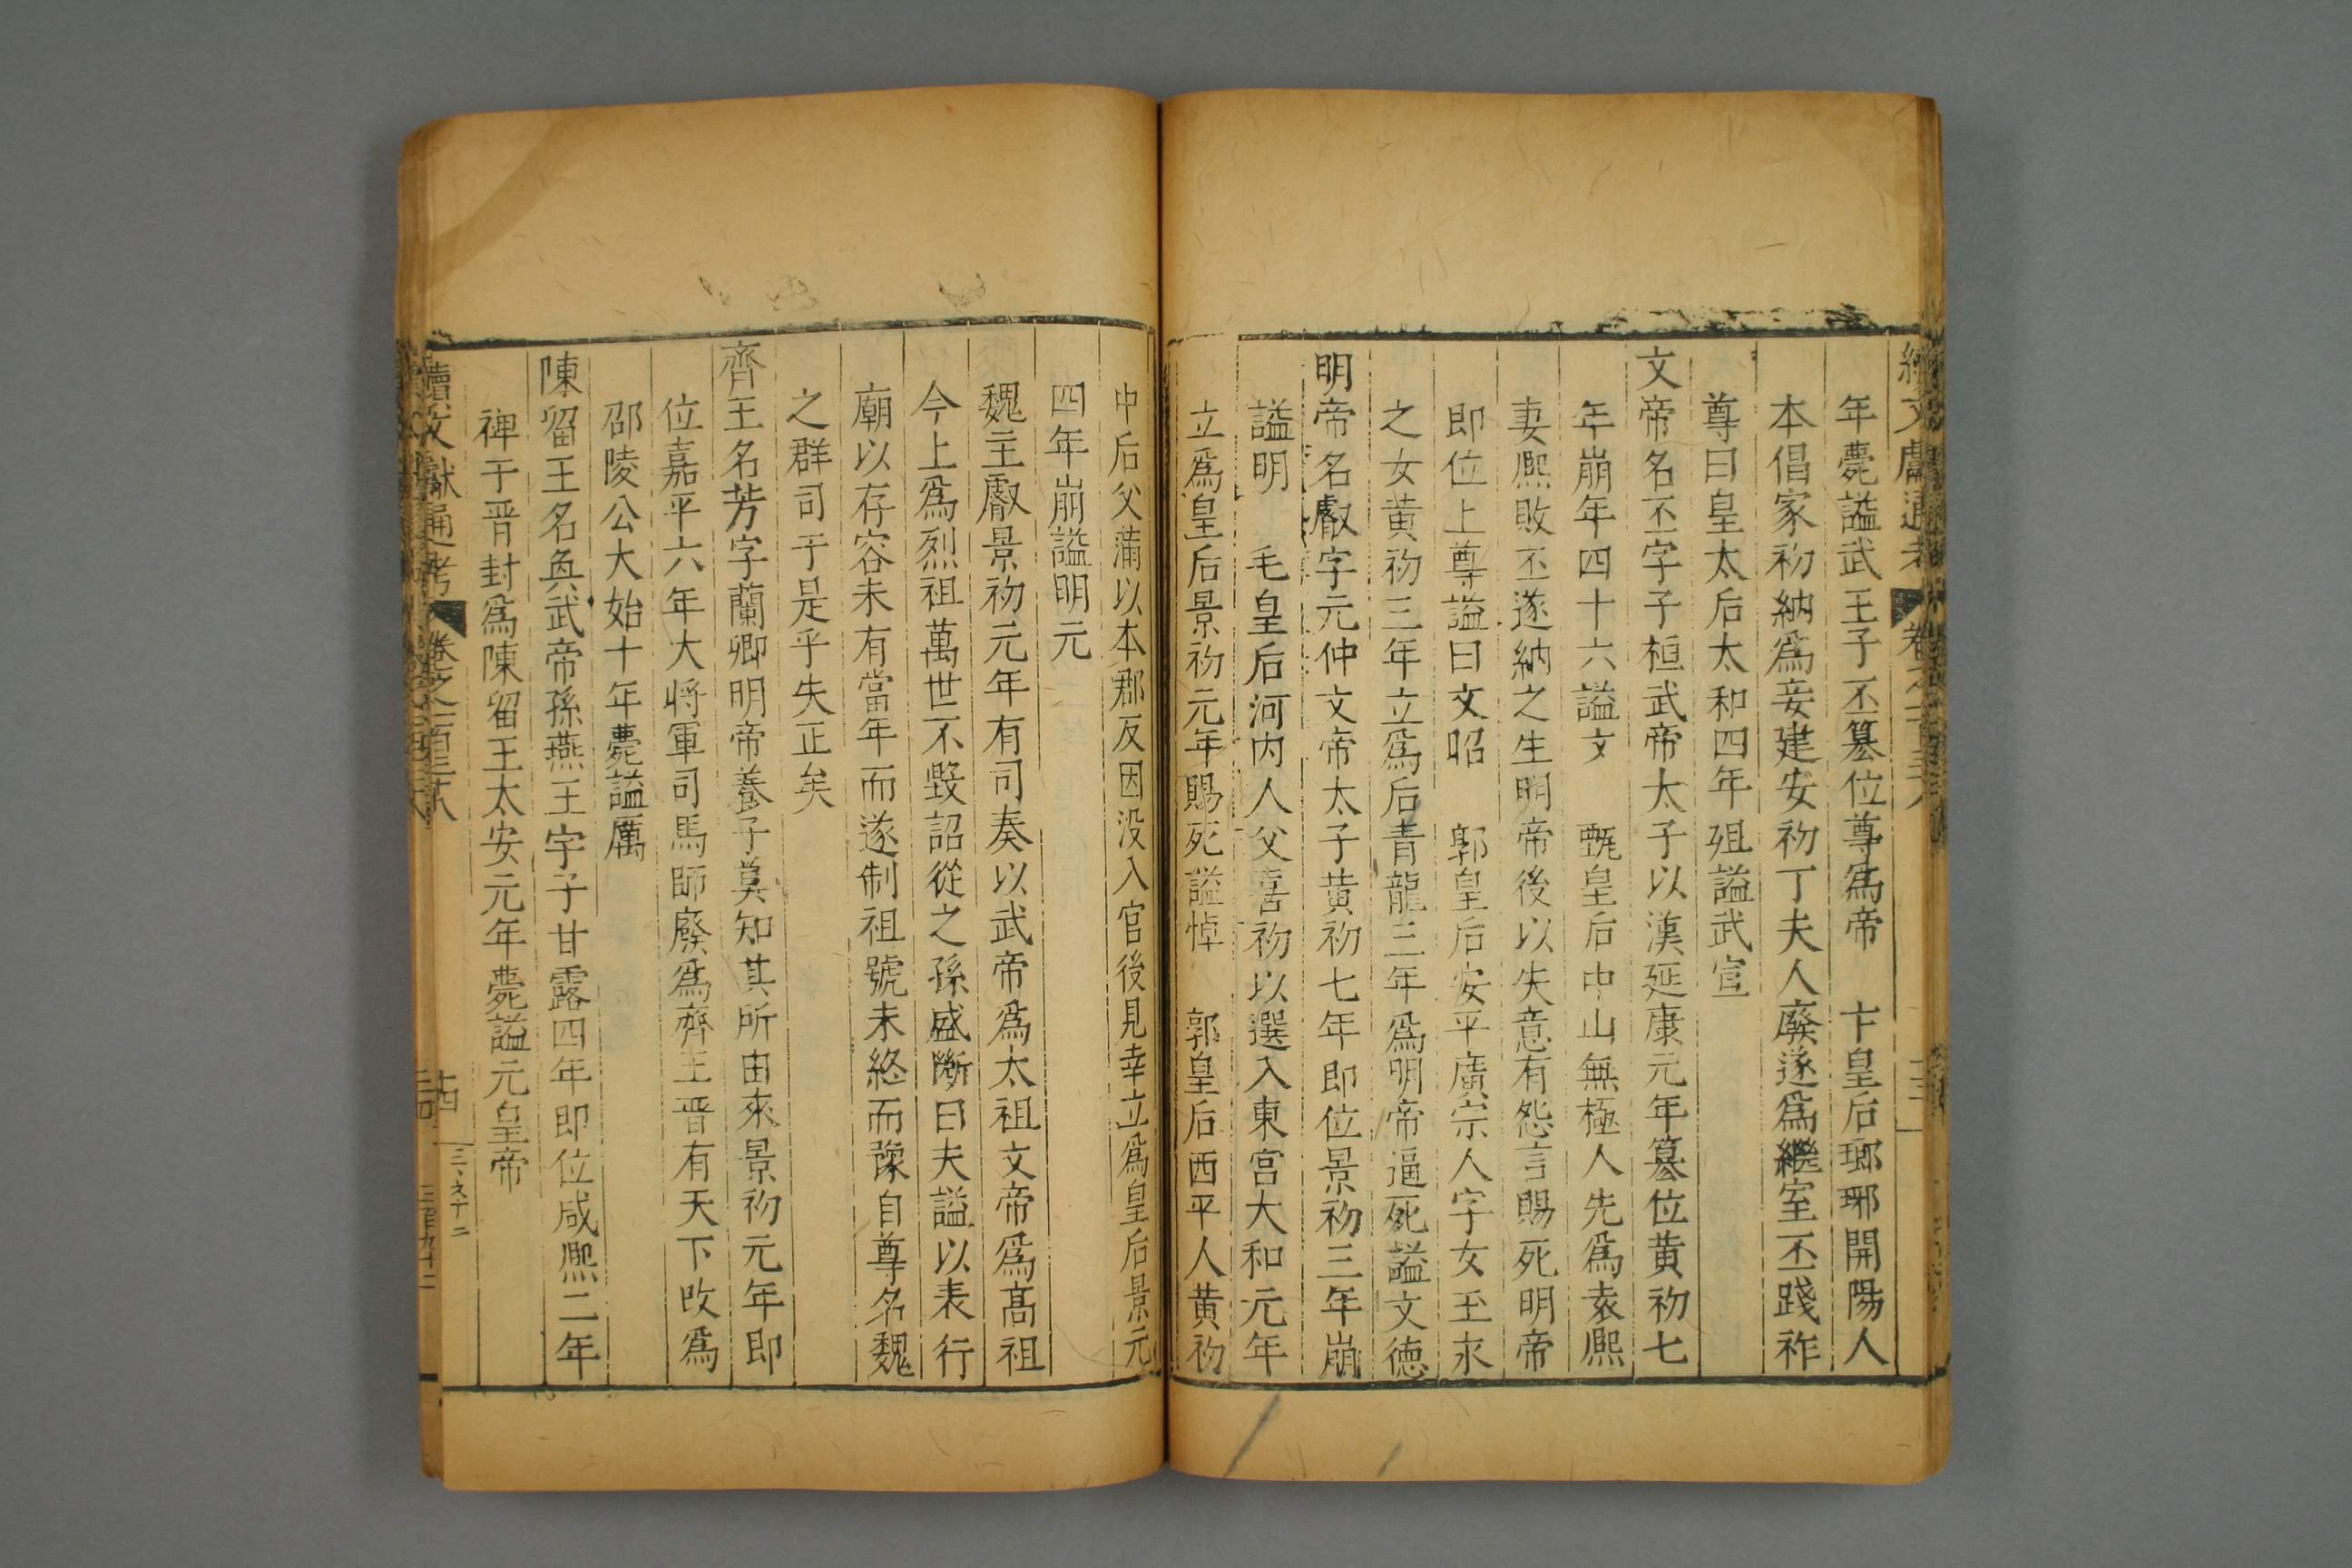 年薨謚武王子丕篡位尊爲帝　卞皇后瑯琊開陽人
本倡家初納爲妾建安初丁夫人廢遂爲繼室丕踐祚
尊曰皇太后太和四年殂謚武宣
文帝名丕字子桓武帝太子以漢延康元年篡位黄初七
年崩年四十六謚文　甄皇后中山無極人先爲袁熙
妻熙敗丕遂納之生明帝後以失意有怨言賜死明帝
即位上尊謚曰文昭　郭皇后安平廣宗人字女王永
之女黄初三年立爲后青龍三年爲明帝逼死謚文徳
明帝名叡字元仲文帝太子黄初七年即位景初三年崩
謚明　毛皇后河内人父喜初以選入東宫大和元年
立爲皇后景初元年賜死謚悼　郭皇后西平人黄初
中后父滿以本郡反因没入官後見幸立爲皇后景元
四年崩謚明元
魏主叡景初元年有司奏以武帝爲太祖文帝爲髙祖
今上爲烈祖萬世不毀詔從之孫盛斷曰夫謚以表行
廟以存容未有當年而遂制祖號未終而豫自尊名魏
之群司于是乎失正矣
齊王名芳字蘭卿明帝養子莫知其所由來景初元年即
位嘉平六年大將軍司馬師廢爲齊王晋有天下改爲
邵陵公大始十年薨謚厲
陳留王名奐武帝孫燕王宇子甘露四年即位咸熙二年
禅于晋封爲陳留王太安元年薨謚元皇帝
續文獻通考